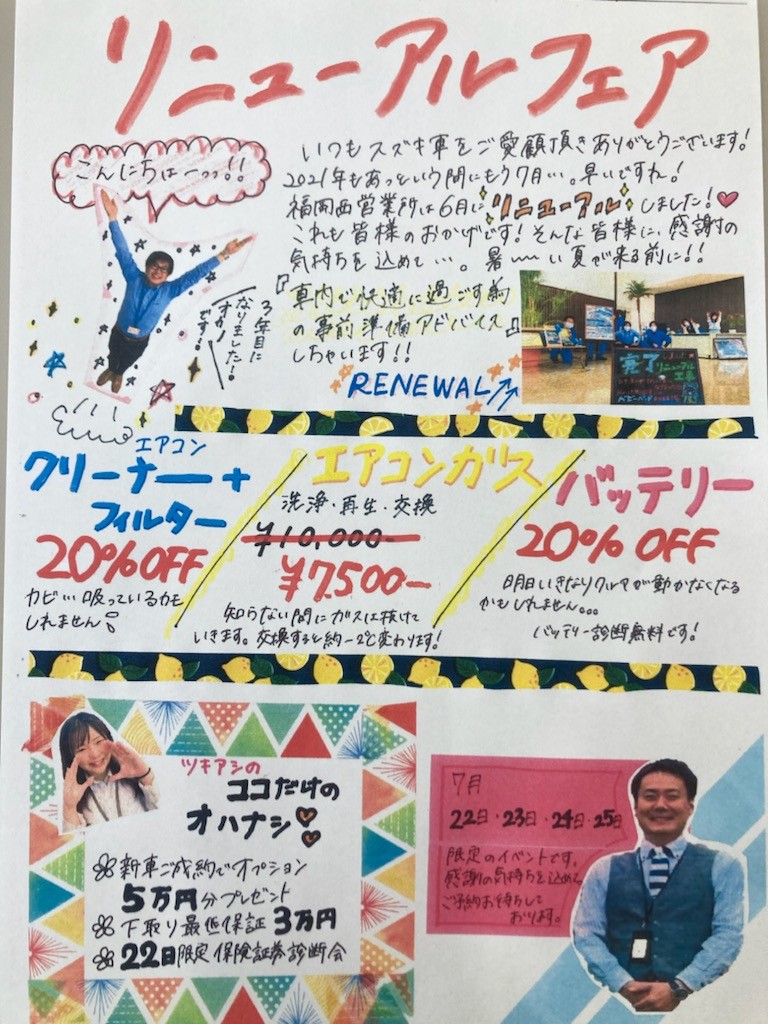 リニューアルフェア
こんにちはーっっ!!
いつもスズキ車をご愛顧頂きありがとうございます!
2021年もあっという間にもう7月…。早いですね!
福岡西営業所は6月にリニューアルしました!
これも皆様のおかげです!そんな皆様に、感謝の
気持ちを込めて…。暑〜い夏が来る前に!!
『車内で快適に過ごす為
の事前準備アドバイス』
しちゃいます!!
3年目に
なりました!
オカノ
です!
RENEWAL
完了
リニューアル
工事
エアコン
クリーナー+
フィルター
20%OFF
カビ…吸っているかも
しれません
エアコンガス
洗浄・再生・交換
¥10,000-
¥7,500-
知らない間にガスは抜けて
いきます。交換すると約-2℃変わります!
バッテリー
20%OFF
明日いきなりクルマが動かなくなる
かもしれません。。。
バッテリー診断無料です!
ツキアシの
ココだけの
オハナシ
新車ご成約でオプション
5万円分プレゼント
下取り最低保証3万円
22日限定保険証券診断会
7月
22日・23日・24日・25日
限定のイベントです。
感謝の気持ちを込めて
ご予約お待ちして
おります。